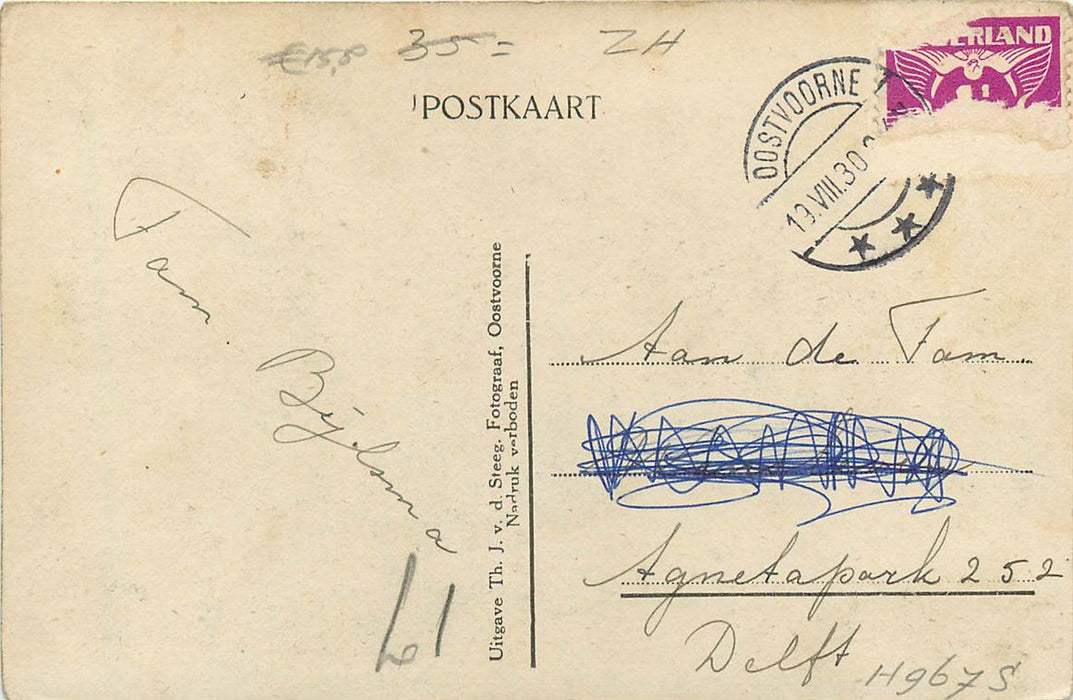 35 =
ZH
POSTKAART
ERLAND
OOSTVOORNE
19.VIII.30
Fam
Bijlsma
Uitgave Th. J. v. d. Steeg. Fotograaf, Oostvoorne
Nadruk verboden
Aan de Fam.
Agnetapark 252
Delft
H967S